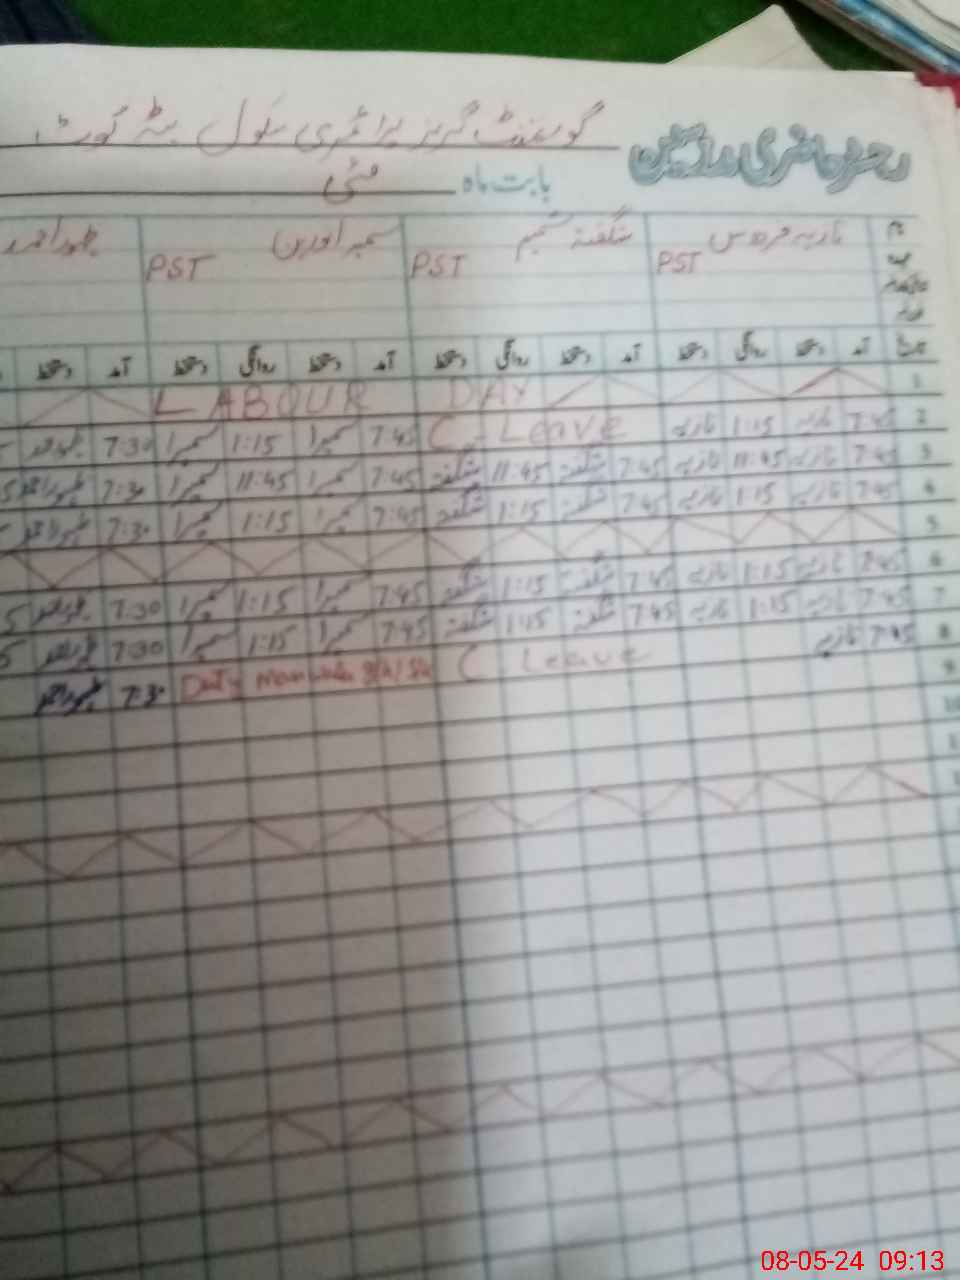 رجسٹر حاضری مدرسین گورنمنٹ گرلز پرائمری سکول
بابت ماہ مئی
نام نازیہ فردوس شگفتہ شمیم سمیرا ظہور احمد
PST PST PST
تاریخ آمد دستخط روانگی دستخط آمد دستخط روانگی دستخط آمد دستخط روانگی دستخط آمد دستخط
1 LABOUR DAY
2 7:45 نازیہ 1:15 نازیہ C. Leave 7:45 سمیرا 1:15 سمیرا 7:30 ظہور احمد
3 7:45 نازیہ 11:45 نازیہ 7:45 شگفتہ 11:45 شگفتہ 7:45 سمیرا 11:45 سمیرا 7:30 ظہور احمد
4 7:45 نازیہ 1:15 نازیہ 7:45 شگفتہ 1:15 شگفتہ 7:45 سمیرا 1:15 سمیرا 7:30 ظہور احمد
5
6 7:45 نازیہ 1:15 نازیہ 7:45 شگفتہ 1:15 شگفتہ 7:45 سمیرا 1:15 سمیرا 7:30 ظہور احمد
7 7:45 نازیہ 1:15 نازیہ 7:45 شگفتہ 1:15 شگفتہ 7:45 سمیرا 1:15 سمیرا 7:30 ظہور احمد
8 7:45 نازیہ C. Leave Duty 7:30 ظہور احمد
9
10
08-05-24 09:13